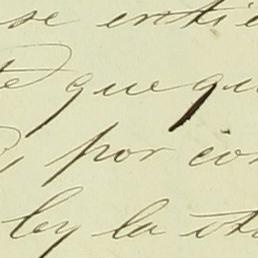 se entie
que qu
por con
ley la ot